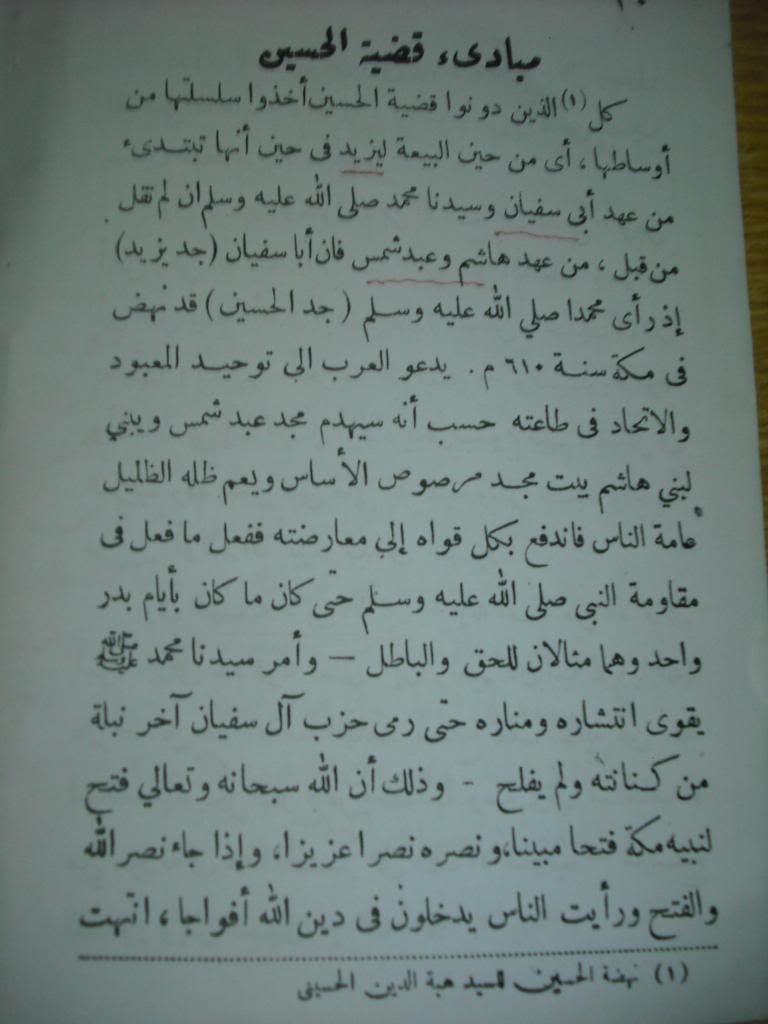 مبادىء قضية الحسين
كل (١) الذين دونوا قضية الحسين أخذوا سلسلتها من
أوساطها، أى من حين البيعة ليزيد فى حين أنها تبتدىء
من عهد أبى سفيان وسيدنا محمد صلى الله عليه وسلم ان لم نقل
من قبل، من عهد هاشم وعبد شمس فان أبا سفيان (جد يزيد)
إذ رأى محمدا صلي الله عليه وسلم (جد الحسين) قد نهض
فى مكة سنة ٦١٠ م. يدعو العرب الى توحيد المعبود
والاتحاد فى طاعته حسب أنه سيهدم مجد عبد شمس ويبني
لبني هاشم بيت مجد مرصوص الأساس ويعم ظله الظليل
عامة الناس فاندفع بكل قواه إلي معارضته ففعل ما فعل فى
مقاومة النبى صلى الله عليه وسلم حتى كان ما كان بأيام بدر
واحد وهما مثالان للحق والباطل — وأمر سيدنا محمد ﷺ
يقوى انتشاره ومناره حتى رمى حزب آل سفيان آخر نبلة
من كنانته ولم يفلح - وذلك أن الله سبحانه وتعالي فتح
لنبيه مكة فتحا مبينا، ونصره نصرا عزيزا، وإذا جاء نصر الله
والفتح ورأيت الناس يدخلون فى دين الله أفواجا، انتهت
(١) نهضة الحسين للسيد هبة الدين الحسينى